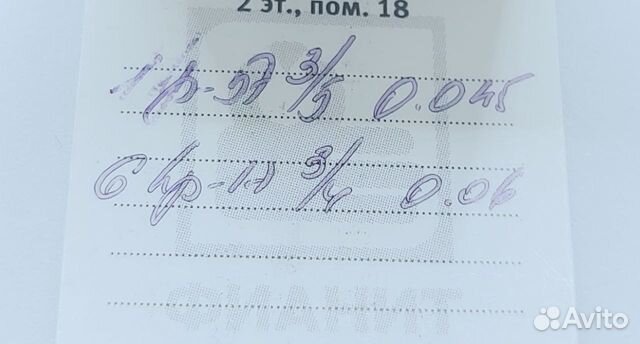 2 эт., пом. 18
1 кр-57 3/5 0.045
6 кр-17 3/4 0.06
ФИАНИТ
Avito